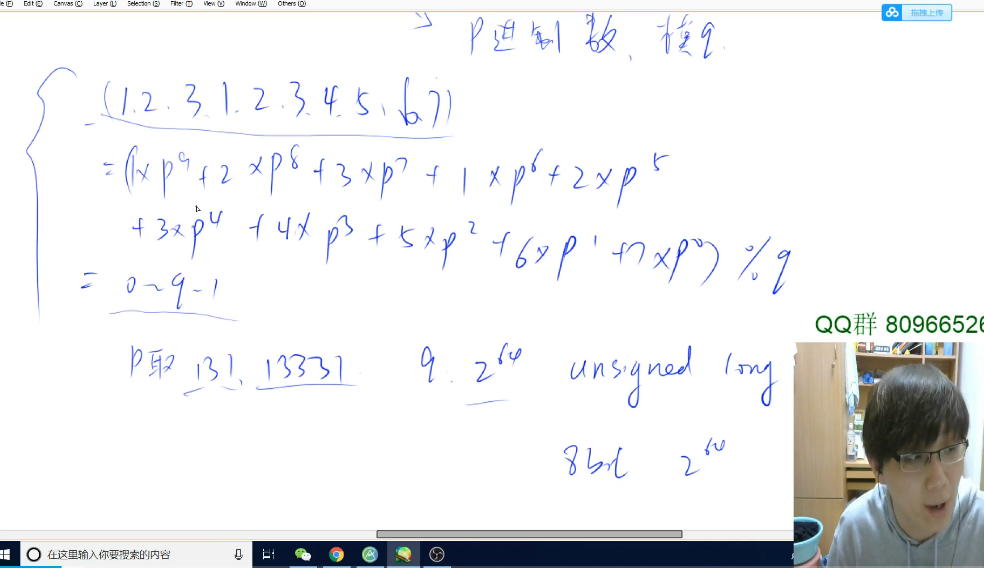 Edit (E) Canvas (C) Layer (L) Selection (S) Filter (T) View (V) Window (W) Others (O)
拖拽上传
P进制数, 模q
(1.2.3.1.2.3.4.5.6.7)
=(1×p⁹+2×p⁸+3×p⁷+1×p⁶+2×p⁵
+3×p⁴+4×p³+5×p²+6×p¹+7×p⁰)%q
= 0~q-1
QQ群 80966526
P取 131, 13331 q. 2⁶⁴ unsigned long
2⁶⁴
在这里输入你要搜索的内容